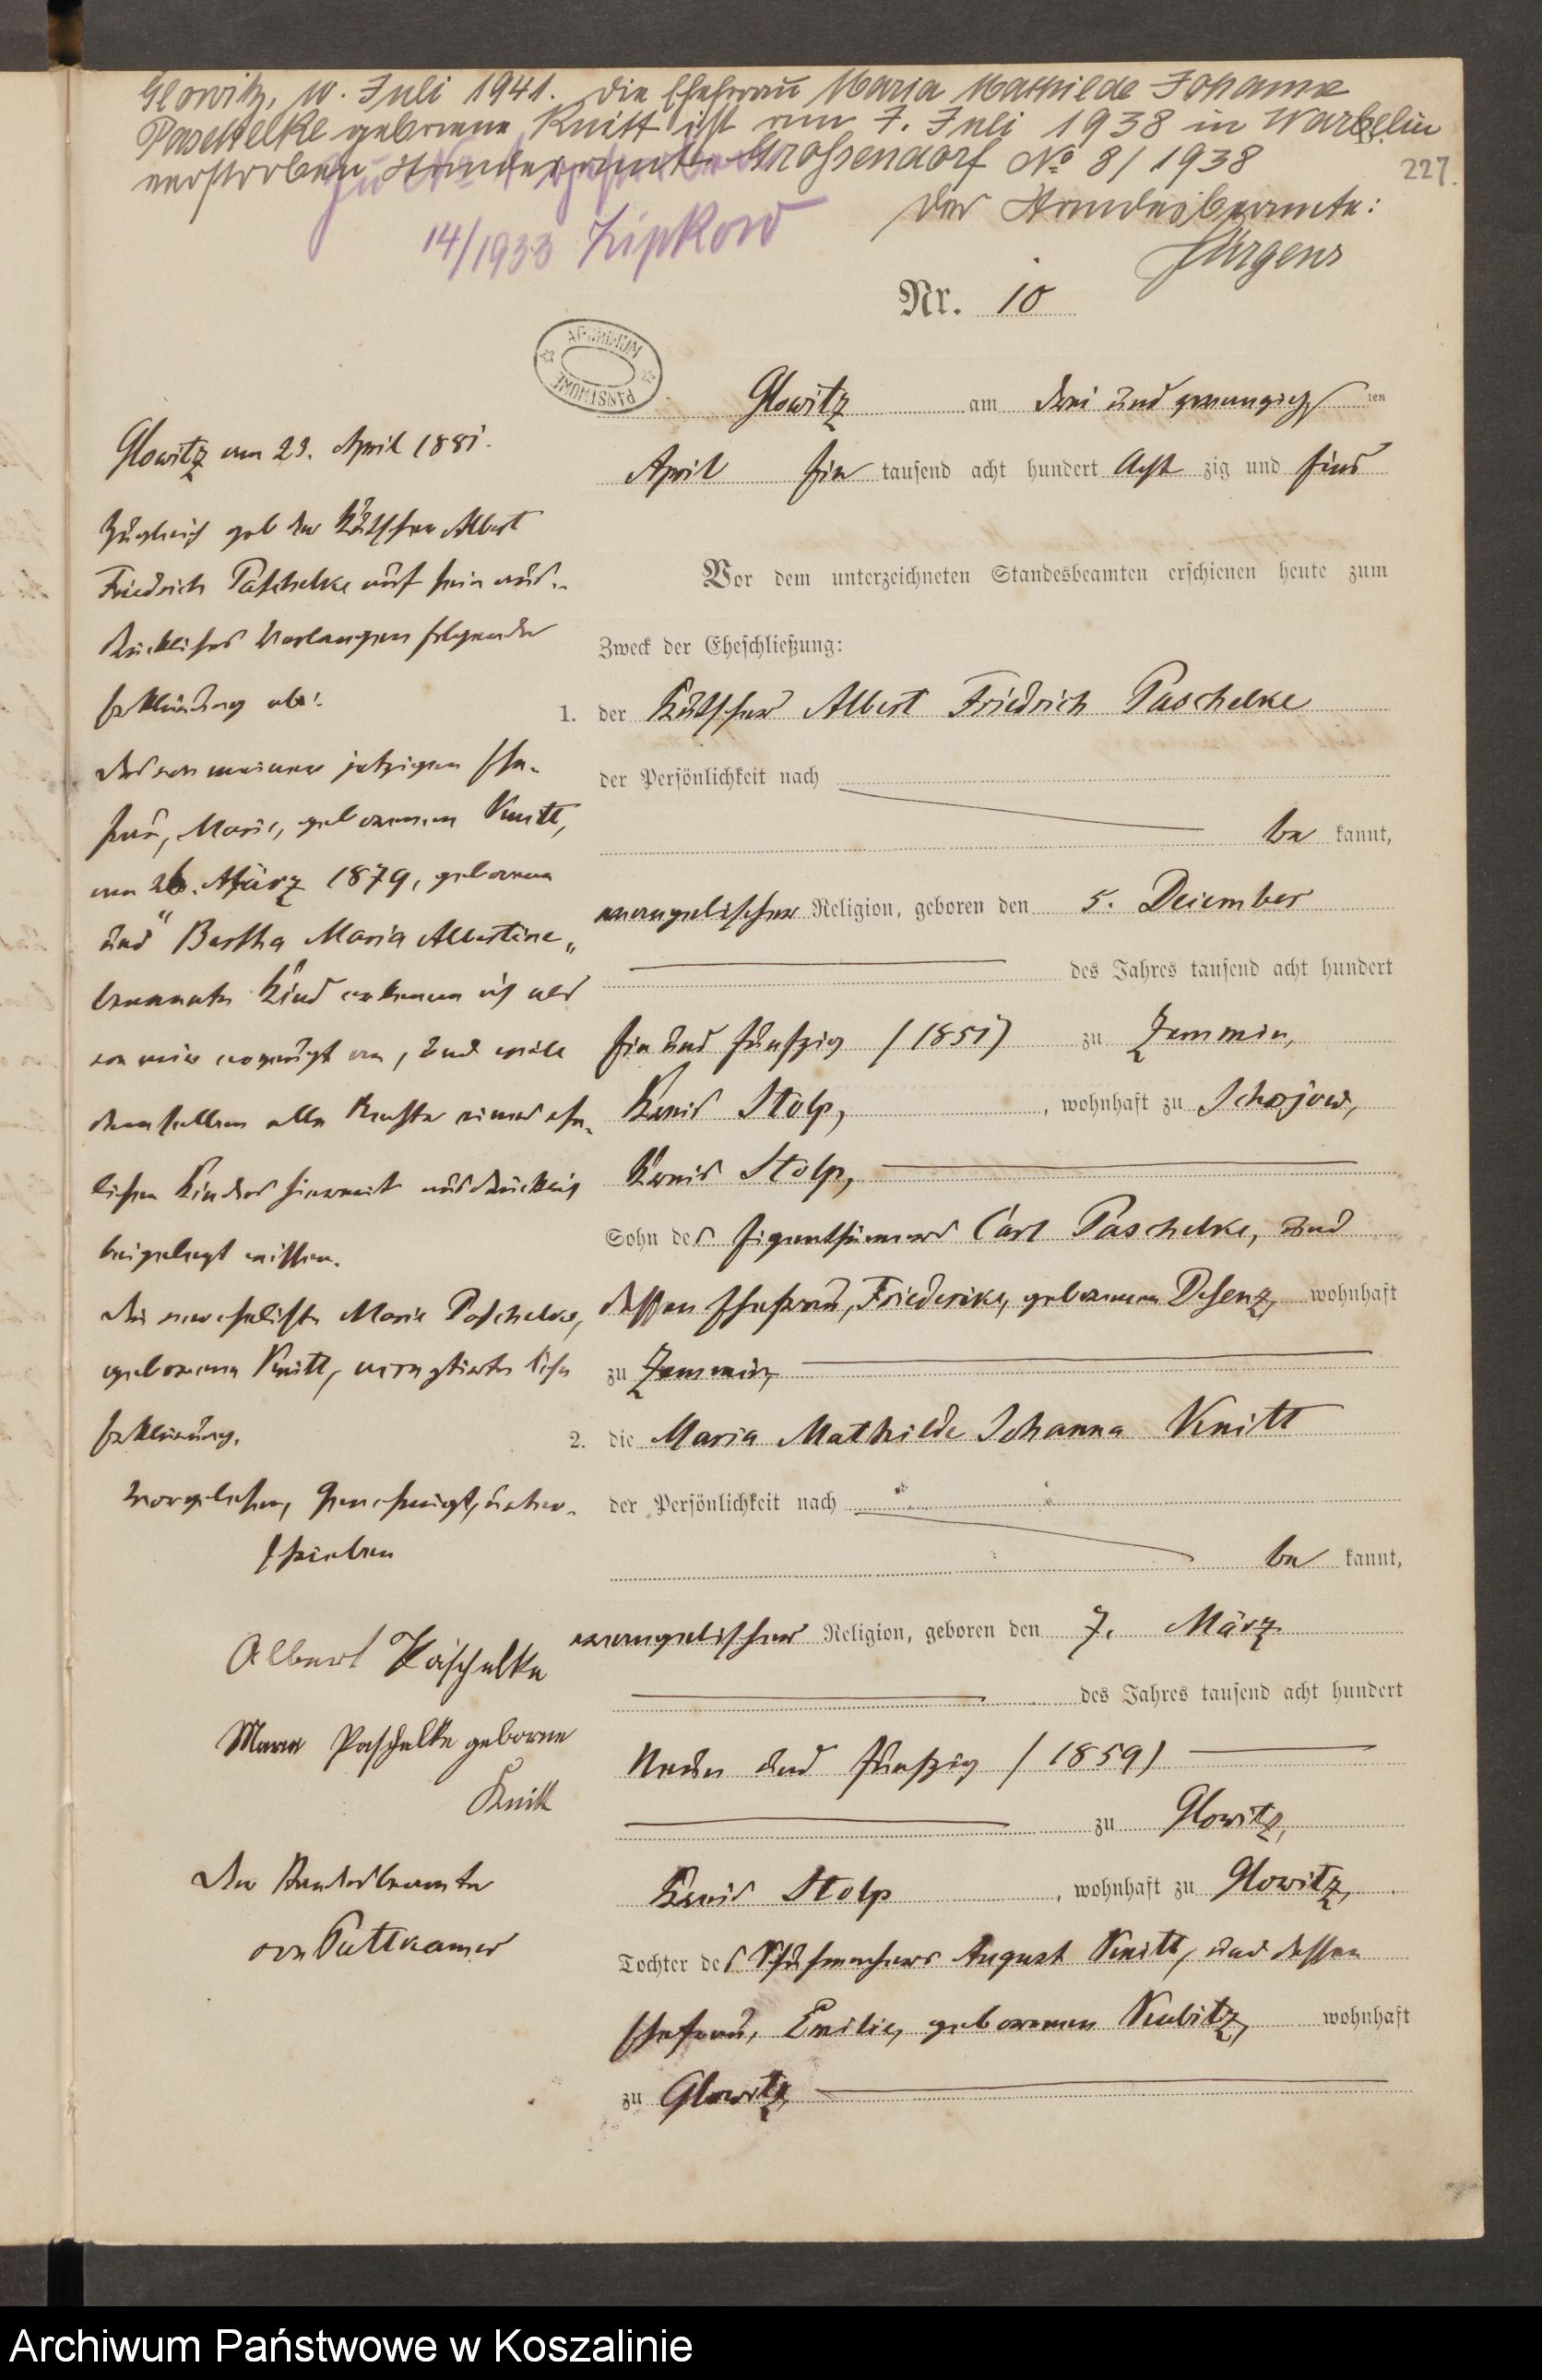 Glowitz, 10. Juli 1941. Die Ehefrau Maria Mathilde Johanna
Paschelke geborene Knitt ist am 7. Juli 1938 in Warbelin
verstorben Standesamt Grossendorf No 8/1938
227.
Der Standesbeamte:
Jürgens
14/1933 Lipkow
Nr. 10
ARCHIWUM PAŃSTWOWE
Glowitz am drei und zwanzigsten
April Ein tausend acht hundert Acht zig und Eins
Vor dem unterzeichneten Standesbeamten erschienen heute zum
Zweck der Eheschließung:
1. der Kutscher Albert Friedrich Paschelke
der Persönlichkeit nach
be kannt,
evangelischer Religion, geboren den 5. December
des Jahres tausend acht hundert
Ein und fünfzig (1851) zu Zemmin,
Kreis Stolp, wohnhaft zu Schojow,
Kreis Stolp,
Sohn des Eigenthümers Carl Paschelke, und
dessen Ehefrau, Friederike, geborenen wohnhaft
zu Zemmin,
2. die Maria Mathilde Johanna Knitt
der Persönlichkeit nach
be kannt,
evangelischer Religion, geboren den 7. März
des Jahres tausend acht hundert
Neun und fünfzig (1859)
zu Glowitz,
Kreis Stolp, wohnhaft zu Glowitz,
Tochter des Schuhmachers August Knitt, und dessen
Ehefrau, Emilie, geborenen Kubitz, wohnhaft
zu Glowitz,
Glowitz am 23. April 1881.
Zugleich gab der Kutscher Albert
Friedrich Paschelke auf sein aus-
drückliches Verlangen folgende
Erklärung ab:
Das von meiner jetzigen Ehe-
frau, Marie, geborenen Knitt,
am 26. März 1879, geborene
und "Bertha Maria Albertine"
benannte Kind erkenne ich als
von mir erzeugt an, und will
demselben alle Rechte eines ehe-
lichen Kindes hiermit ausdrücklich
beigelegt wissen.
Die verehelichte Marie Paschelke,
geborene Knitt, acceptirte diese
Erklärung.
Vorgelesen, genehmigt, unter-
schrieben
Albert Paschelke
Maria Paschelke geborne
Knitt
Der Standesbeamte
von Puttkamer
Archiwum Państwowe w Koszalinie